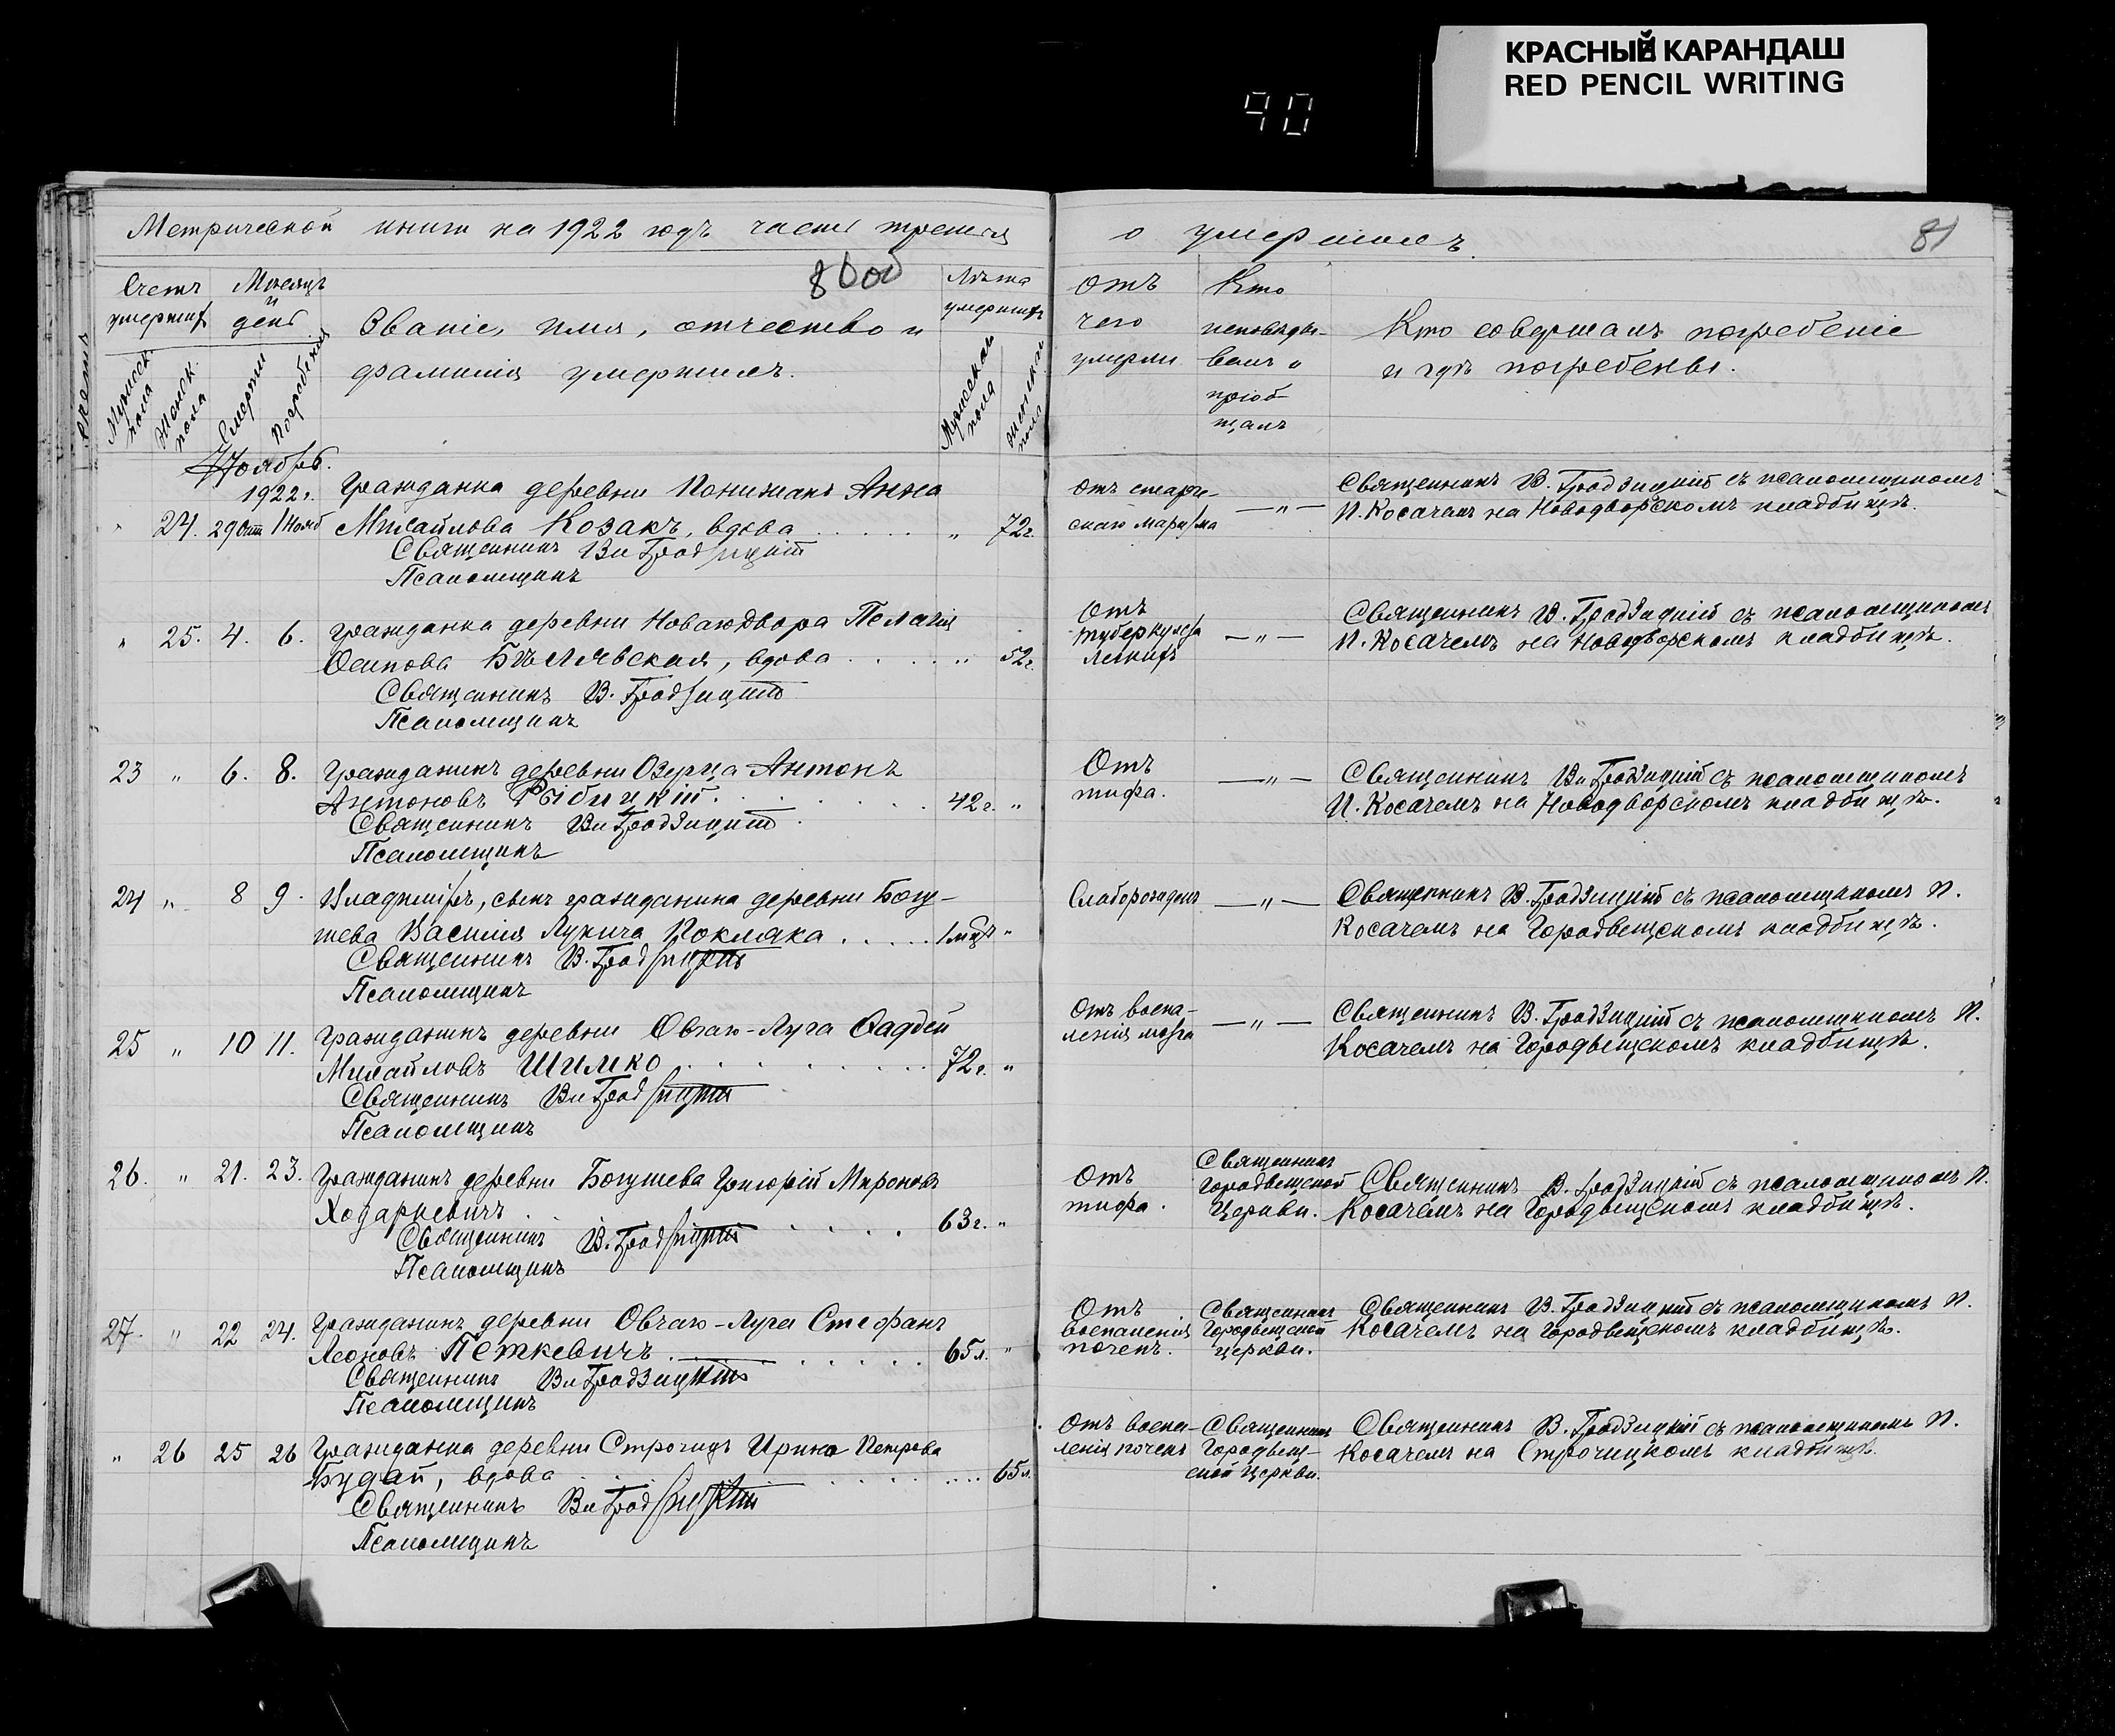 КРАСНЫЙ КАРАНДАШ
RED PENCIL WRITING
90
Метрической книги на 1922 годъ часть третія
о умершихъ.
81
80об
Счетъ умершихъ
Мѣсяцъ и день
Званіе, имя, отчество и
фамилія умершихъ.
Лѣта умершихъ
Мужеск. пола
Женск. пола
Смерти
Погребенія
Мужеска пола
Женска пола
Отъ
чего
умерли
Кто
исповѣды-
валъ и
пріоб-
щалъ
Кто совершалъ погребеніе
и гдѣ погребены.
Ноябрь.
1922г.
Гражданка деревни Понижанъ Анна
" 24. 29 Окт 1 Нояб Михайлова Козакъ, вдова . . . . . " 72г.
Священникъ Вл Гродзицкій
Псаломщикъ
Отъ старче-
скаго маразма
— " —
Священникъ В. Гродзицкій съ псаломщикомъ
И. Косачемъ на Новодворскомъ кладбищѣ.
" 25. 4. 6. Гражданка деревни Новагодвора Пелагія
Осипова Бѣлявская, вдова . . . . " 52г.
Священникъ В. Гродзицкій
Псаломщикъ
Отъ
туберкулеза
легкихъ
— " —
Священникъ В. Гродзицкій съ псаломщикомъ
И. Косачемъ на Новодворскомъ кладбищѣ.
23 " 6. 8. Гражданинъ деревни Озерца Антонъ
Антоновъ Рыбицкій . . . . . . . 42г. "
Священникъ Вл Гродзицкій
Псаломщикъ
Отъ
тифа.
— " —
Священникъ Вл Гродзицкій съ псаломщикомъ
И. Косачемъ на Новодворскомъ кладбищѣ.
24 " 8 9. Владиміръ, сынъ гражданина деревни Богу-
шева Василія Лукича Покляка . . . . . 1 мцъ "
Священникъ В. Гродзицкій
Псаломщикъ
Слаборожденъ
— " —
Священникъ В. Гродзицкій съ псаломщикомъ И.
Косачемъ на Городвещскомъ кладбищѣ.
25 " 10 11. Гражданинъ деревни Овчаго-Луга Фаддей
Михайловъ Шимко . . . . . . . . 72г. "
Священникъ Вл Гродзицкій
Псаломщикъ
Отъ воспа-
ленія мозга
— " —
Священникъ В. Гродзицкій съ псаломщикомъ И.
Косачемъ на Городвещскомъ кладбищѣ.
26. " 21. 23. Гражданинъ деревни Богушева Григорій Мироновъ
Ходаркевичъ . . . . . . . 63г. "
Священникъ В. Гродзицкій
Псаломщикъ
Отъ
тифа.
Священникъ
Городвещской
Церкви.
Священникъ В. Гродзицкій съ псаломщикомъ И.
Косачемъ на Городвещскомъ кладбищѣ.
27. " 22 24. Гражданинъ деревни Овчаго-Луга Стефанъ
Леоновъ Петкевичъ . . . . . . . 65л. "
Священникъ Вл Гродзицкій
Псаломщикъ
Отъ
воспаленія
почекъ.
Священникъ
Городвещской
церкви.
Священникъ В. Гродзицкій съ псаломщикомъ И.
Косачемъ на Городвещскомъ кладбищѣ.
" 26 25 26 Гражданка деревни Строчицъ Ирина Петрова
Будай, вдова . . . . . . . . . 65л.
Священникъ Вл Гродзицкій
Псаломщикъ
Отъ воспа-
ленія почекъ
Священникъ
Городвещ-
ской Церкви.
Священникъ В. Гродзицкій съ псаломщикомъ И.
Косачемъ на Строчицкомъ кладбищѣ.